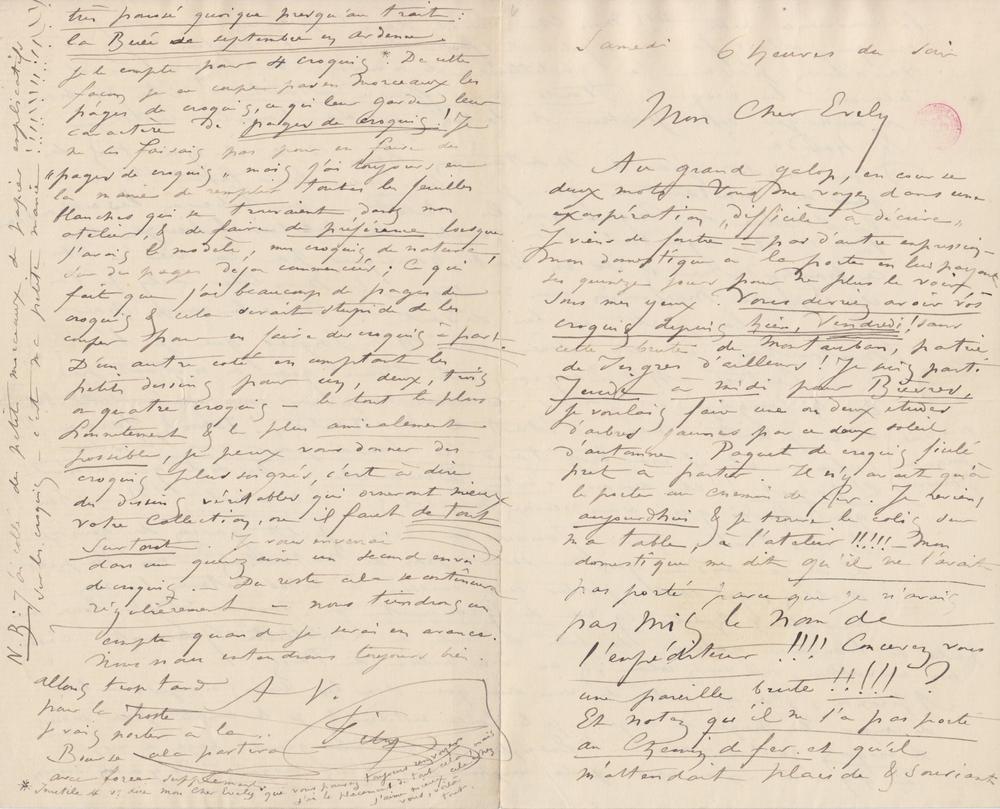 Samedi 6 heures du soir
Mon Cher Evely
Au grand galop, en course
deux mots. Vous me voyez dans une
exaspération „difficile à décrire„
Je viens de foutre – pas d'autre expression –
mon domestique à la porte en lui payant
ses quinze jours pour ne plus le voir
sous mes yeux. Vous devriez avoir vos
croquis depuis hier, Vendredi! sans
cette brute de Montauban, patrie
de Ingres d'ailleurs! Je suis parti
Jeudi à midi pour Bièvres,
je voulais faire une ou deux études
d'arbres jaunes par ce doux soleil
d'automne. Paquet de croquis ficelé
prêt à partir. Il n'y avait qu'à
le porter au chemin de fer. Je reviens
aujourdhui & je trouve le colis sur
ma table, à l'atelier !!!!! – Mon
domestique me dit qu'il ne l'avait
pas porté parce que je n'avais
pas mis le nom de
l'expéditeur !!!! Concevez vous
une pareille brute !!!!! ?
Et notez qu'il ne l'a pas porté
au Chemin de fer et qu'il
m'attendait placide & souriant
très poussé quoique presqu'au trait:
la Buée de septembre en Ardenne.
Je le compte pour 4 croquis *. De cette
façon je ne coupe pas en morceaux les
pages de croquis, ce qui leur garde leur
caractère de pages de croquis! Je
ne les faisais pas pour en faire des
„pages de croquis„ mais j'ai toujours eu
la manie de remplir toutes les feuilles
blanches qui se trouvaient dans mon
atelier, & de faire de préférence lorsque
j'avais le modèle, mes croquis de nature
sur des pages déjà commencées; Ce qui
fait que j'ai beaucoup de pages de
croquis & cela serait stupide de les
couper pour en faire des croquis à part.
D'un autre coté en comptant les
petits dessins pour un, deux, trois
ou quatre croquis – le tout le plus
honnêtement & le plus amicalement
possible, je peux vous donner des
croquis plus soignés, c'est à dire
des dessins véritables qui orneront mieux
votre Collection, ce qu'il faut de tout
surtout. Je vous enverrai
dans une quinzaine un second envoi
de croquis. – Du reste cela se continuera
régulièrement – nous tiendrons un
compte quand je serai en avance.
Nous nous entendrons toujours bien.
allons trop tard
pour la poste
je vais porter à la
Bourse cela partira
avec Taxe supplémentaire
A V.
* Inutile de vous dire mon cher Evely que vous pouvez toujours renvoyer
j'ai le placement de tout cela mais
j'aime mieux cela chez
vous, voilà
tout.
N. B: J'ai collé des petits morceaux de papier explicatifs
sur les croquis – c'est ma petite manie! !!!!!!!!!